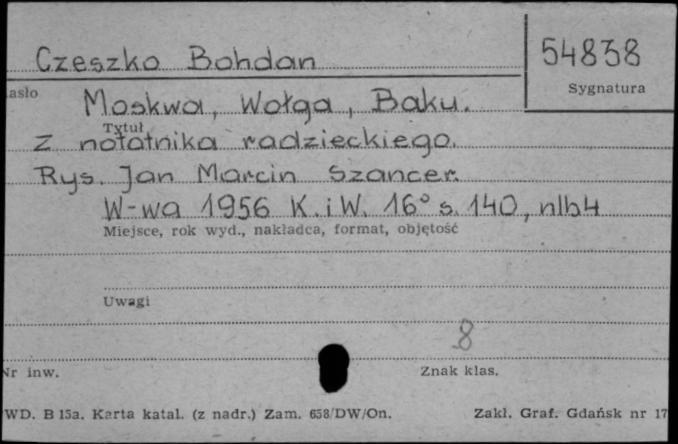 Czeszko Bohdan
54838
Sygnatura
asło
Moskwa, Wołga, Baku.
Tytuł
Z notatnika radzieckiego.
Rys. Jan Marcin Szancer.
W-wa 1956 K. i W. 16° s. 140, nlb4
Miejsce, rok wyd., nakładca, format, objętość
Uwagi
8
Nr inw.
Znak klas.
WD. B 15a. Karta katal. (z nadr.) Zam. 658/DW/On.
Zakł. Graf. Gdańsk nr 17